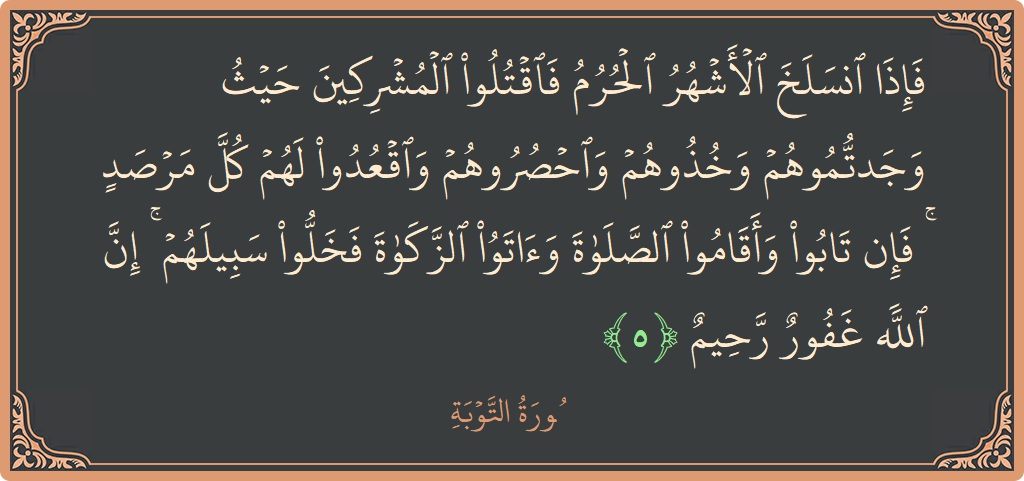 فَإِذَا ٱنسَلَخَ ٱلۡأَشۡهُرُ ٱلۡحُرُمُ فَٱقۡتُلُواْ ٱلۡمُشۡرِكِينَ حَيۡثُ
وَجَدتُّمُوهُمۡ وَخُذُوهُمۡ وَٱحۡصُرُوهُمۡ وَٱقۡعُدُواْ لَهُمۡ كُلَّ مَرۡصَدٖ
ۚ فَإِن تَابُواْ وَأَقَامُواْ ٱلصَّلَوٰةَ وَءَاتَوُاْ ٱلزَّكَوٰةَ فَخَلُّواْ سَبِيلَهُمۡ ۚ إِنَّ
ٱللَّهَ غَفُورٞ رَّحِيمٞ ﴿٥﴾
ُورَةُ التَّوۡبَةِ